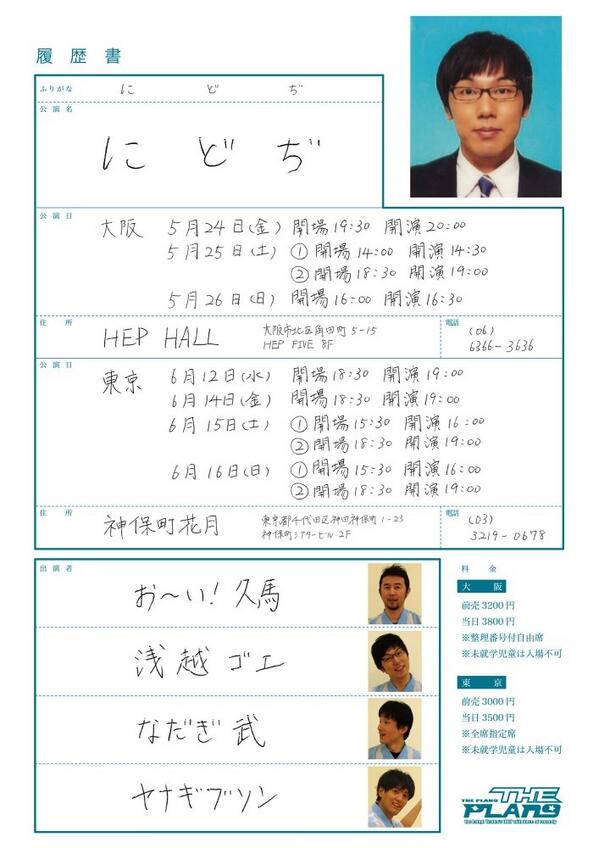 履歴書
ふりがな に ど ぢ
公演名
に ど ぢ
公演日
大阪 5月24日(金) 開場19:30 開演20:00
5月25日(土) ①開場14:00 開演14:30
②開場18:30 開演19:00
5月26日(日) 開場16:00 開演16:30
住所
HEP HALL
大阪市北区角田町5-15
HEP FIVE 8F
電話
(06)
6366-3636
公演日
東京 6月12日(水) 開場18:30 開演19:00
6月14日(金) 開場18:30 開演19:00
6月15日(土) ①開場15:30 開演16:00
②開場18:30 開演19:00
6月16日(日) ①開場15:30 開演16:00
②開場18:30 開演19:00
住所
神保町花月
東京都千代田区神田神保町1-23
神保町シアタービル2F
電話
(03)
3219-0678
出演者
お〜い!久馬
浅越ゴエ
なだぎ武
ヤナギブソン
料金
大阪
前売3200円
当日3800円
※整理番号付自由席
※未就学児童は入場不可
東京
前売3000円
当日3500円
※全席指定席
※未就学児童は入場不可
THE PLAN9
THE PLAN9